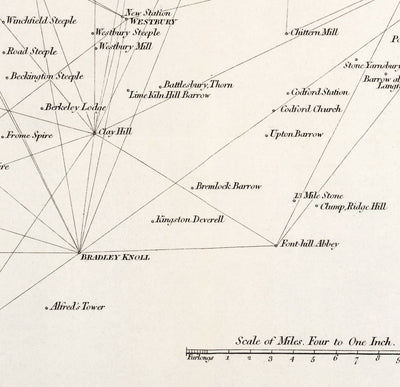 New Station
Winchfield Steeple
WESTBURY
Westbury Steeple
Chittern Mill
Westbury Mill
Road Steeple
Stone Yarnsbury
Beckington Steeple
Barrow
Battlesbury, Thorn
Codford Station
Lime Kiln Hill Barrow
Berkeley Lodge
Codford Church
Clay Hill
Upton Barrow
Frome Spire
Bremlock Barrow
13 Mile Stone
Clump, Ridge Hill
Kingston Deverell
Font-hill Abbey
BRADLEY KNOLL
Alfred's Tower
Scale of Miles. Four to One Inch.
Furlongs 1 2 3 4 5 6 7 8 9